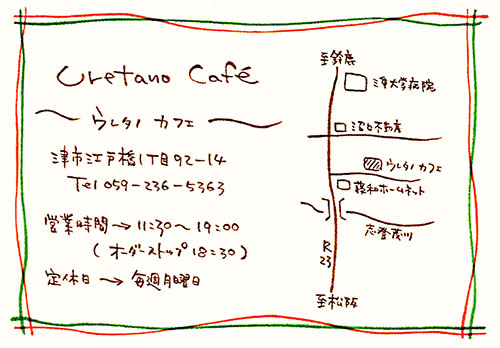 Uretano Café
ウレタノ カフェ
津市江戸橋1丁目92-14
Tel 059-236-5363
営業時間→11:30～19:00
(オーダーストップ18:30)
定休日→毎週月曜日
至鈴鹿
三重大学病院
不動産
ウレタノ カフェ
ホームネット
志登茂川
R23
至松阪